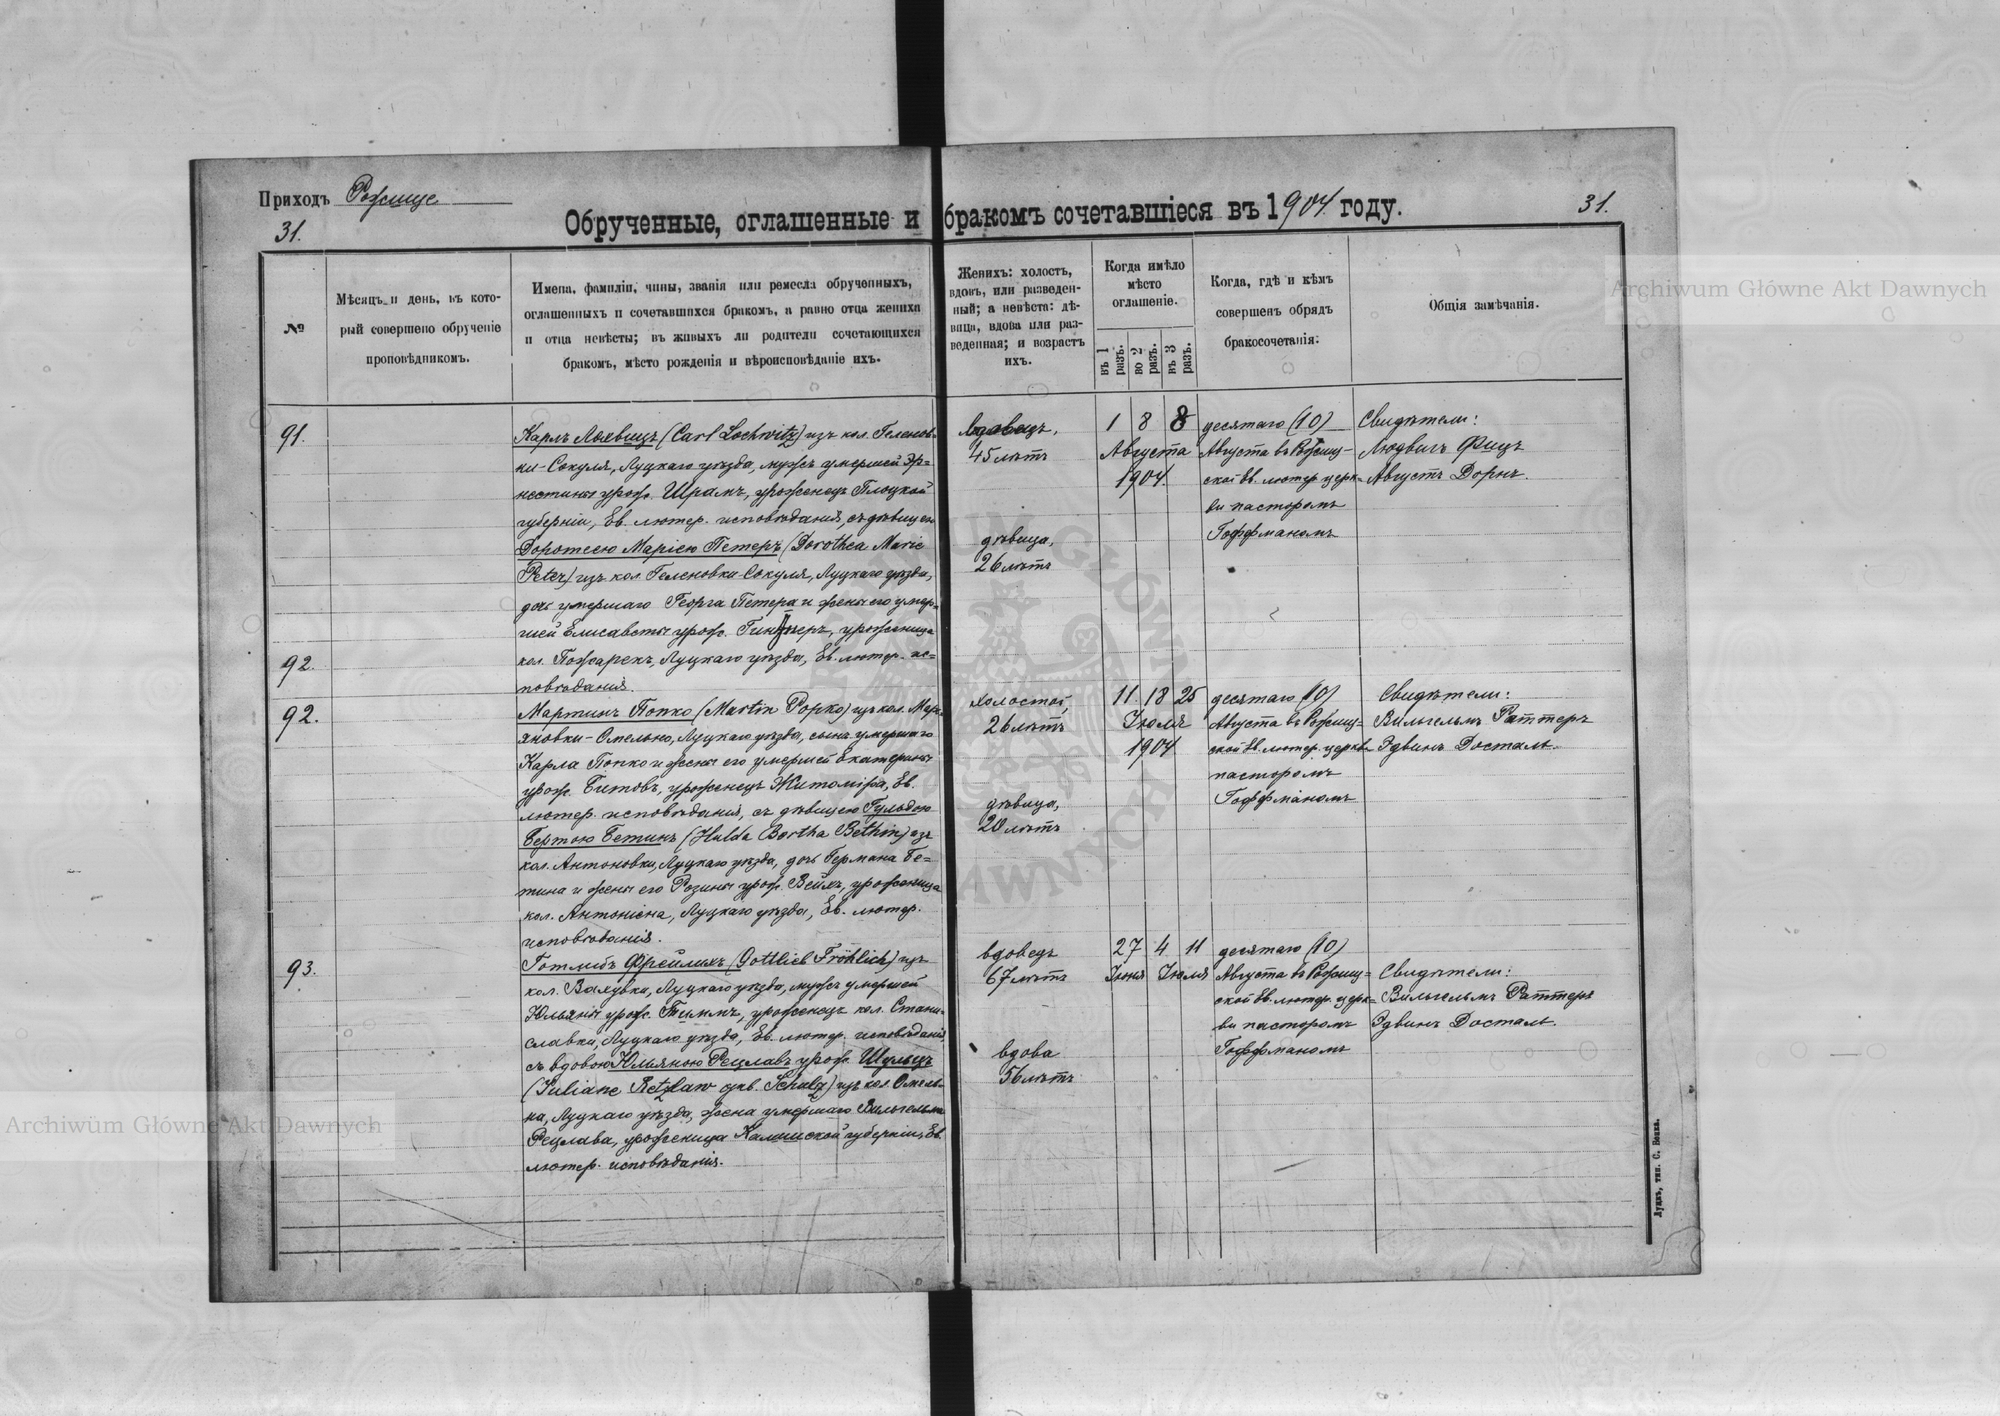 Приходъ Рожище
31.
Обрученные, оглашенные и бракомъ сочетавшіеся въ 1904 году.
31.
№
Мѣсяцъ и день, въ кото-
рый совершено обрученіе
проповѣдникомъ.
Имена, фамиліи, чины, званія или ремесла обрученныхъ,
оглашенныхъ и сочетавшихся бракомъ, а равно отца жениха
и отца невѣсты; въ живыхъ ли родители сочетающихся
бракомъ, мѣсто рожденія и вѣроисповѣданіе ихъ.
Женихъ: холостъ,
вдовъ, или разведен-
ный; а невѣста: дѣ-
вица, вдова или раз-
веденная; и возрастъ
ихъ.
Когда имѣло
мѣсто
оглашеніе.
въ 1 разъ.
во 2 разъ.
въ 3 разъ.
Когда, гдѣ и кѣмъ
совершенъ обрядъ
бракосочетанія:
Общія замѣчанія.
91.
Карлъ Лохвицъ (Carl Lochwitz) изъ кол. Геленов-
ки-Сокуля, Луцкаго уѣзда, мужъ умершей Эр-
нестины урож. Шрамъ, уроженецъ Плоцкой
губерніи, Ев. лютер. исповѣданія, съ дѣвицею
Доротеею Маріею Петеръ (Dorothea Marie
Peter) изъ кол. Геленовки Сокуля, Луцкаго уѣзда,
дочь умершаго Георга Петера и жены его умер-
шей Елисаветы урож. , уроженица
кол. Пожарекъ, Луцкаго уѣзда, Ев. лютер. ис-
повѣданія.
вдовецъ,
45 лѣтъ
дѣвица,
26 лѣтъ
1 8 8
Августа
1904.
десятаго (10)
Августа въ Рожищ-
ской Ев. лютер. церк-
ви пасторомъ
Гоффманомъ
Свидѣтели:
Людвигъ Фицъ
Августъ Дорнъ.
92.
92.
Мартинъ Попко (Martin Popko) изъ кол. Марь-
яновки-Омельно, Луцкаго уѣзда, сынъ умершаго
Карла Попко и жены его умершей Екатерины
урож. Битовъ, уроженецъ Житоміра, Ев.
лютер. исповѣданія, съ дѣвицею Гульдою
Бертою Бетинъ (Hulda Bertha Bethin) изъ
кол. Антоновки, Луцкаго уѣзда, дочь Германа Бе-
тина и жены его Розины урож. Вейхъ, уроженица
кол. Антонина, Луцкаго уѣзда, Ев. лютер.
исповѣданія.
холостой,
26 лѣтъ
дѣвица,
20 лѣтъ
11 18 25
Іюля
1904
десятаго (10)
Августа въ Рожищ-
ской Ев. лютер. церкви
пасторомъ
Гоффманомъ
Свидѣтели:
Вильгельмъ Раттеръ
Эдвинъ Досталь.
93.
Готлибъ Фрейлихъ (Gottlieb Fröhlich) изъ
кол. Валудки, Луцкаго уѣзда, мужъ умершей
Юльяны урож. Тимъ, уроженецъ кол. Стани-
славки, Луцкаго уѣзда, Ев. лютер. исповѣданія,
съ вдовою Юльяною Рецлавъ урож. Шульцъ
(Juliane Retzlaw geb. Schulz) изъ кол. Омель-
на, Луцкаго уѣзда, жена умершаго Вильгельма
Рецлава, уроженица Калишской губерніи, Ев.
лютер. исповѣданія.
вдовецъ
67 лѣтъ
вдова
56 лѣтъ
27 4 11
Іюня Іюля
десятаго (10)
Августа въ Рожищ-
ской Ев. лютер. церк-
ви пасторомъ
Гоффманомъ
Свидѣтели:
Вильгельмъ Раттеръ
Эдвинъ Досталь.
Луцкъ, тип. С. Бонка.
Archiwum Główne Akt Dawnych
Archiwum Główne Akt Dawnych